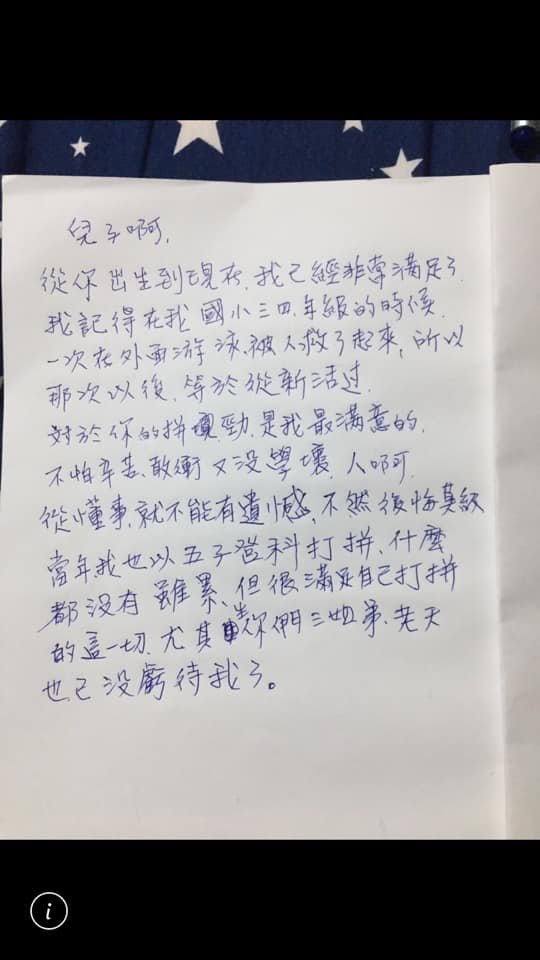 兒子啊,
從你出生到現在,我已經非常滿足了.
我記得在我國小三四年級的時候.
一次在外面游泳,被人救了起來,所以
那次以後,等於從新活过.
對於你的拼勁,是我最滿意的,
不怕辛苦、敢衝又没學壞,人啊,
從懂事,就不能有遺憾,不然後悔莫
當年我也以五子登科打拼,什麼
都没有雖累、但很滿足自己打拼
的這一切、尤其你們三姐弟、老天
也已没虧待我了。
i